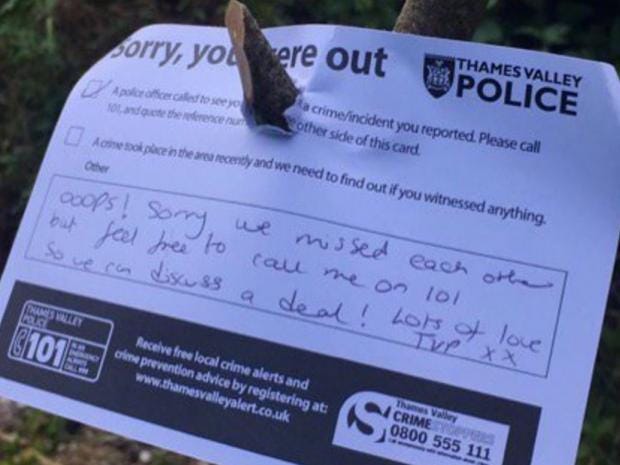 Sorry, you were out
THAMES VALLEY
POLICE
A police officer called to see you a crime/incident you reported. Please call
101, and quote the reference num other side of this card.
A crime took place in the area recently and we need to find out if you witnessed anything.
Other
OOOPS! Sorry we missed each other
but feel free to call me on 101
So we can discuss a deal! Lots of love
TVP XX
THAMES VALLEY
POLICE
101
IN AN
EMERGENCY
ALWAYS
CALL 999
Receive free local crime alerts and
crime prevention advice by registering at:
www.thamesvalleyalert.co.uk
Thames Valley
CRIMESTOPPERS
0800 555 111